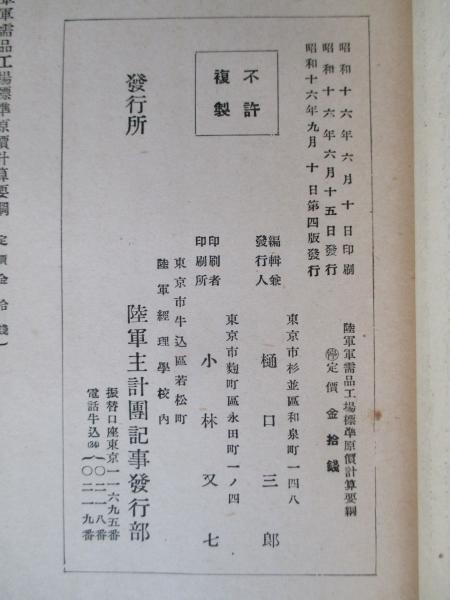 昭和十六年六月十日印刷
昭和十六年六月十五日發行
昭和十六年九月十日第四版發行
陸軍軍需品工場標準原價計算要綱
㊕定價金拾錢
不許
複製
東京市杉並區和泉町一四八
編輯兼
發行人
樋口三郎
東京市麴町區永田町一ノ四
印刷者
印刷所
小林又七
東京市牛込區若松町
陸軍經理學校內
發行所
陸軍主計團記事發行部
振替口座東京一一六九五番
電話牛込(34)一〇二一八番
一〇二一九番
軍需品工場標準原價計算要綱
定價金拾錢